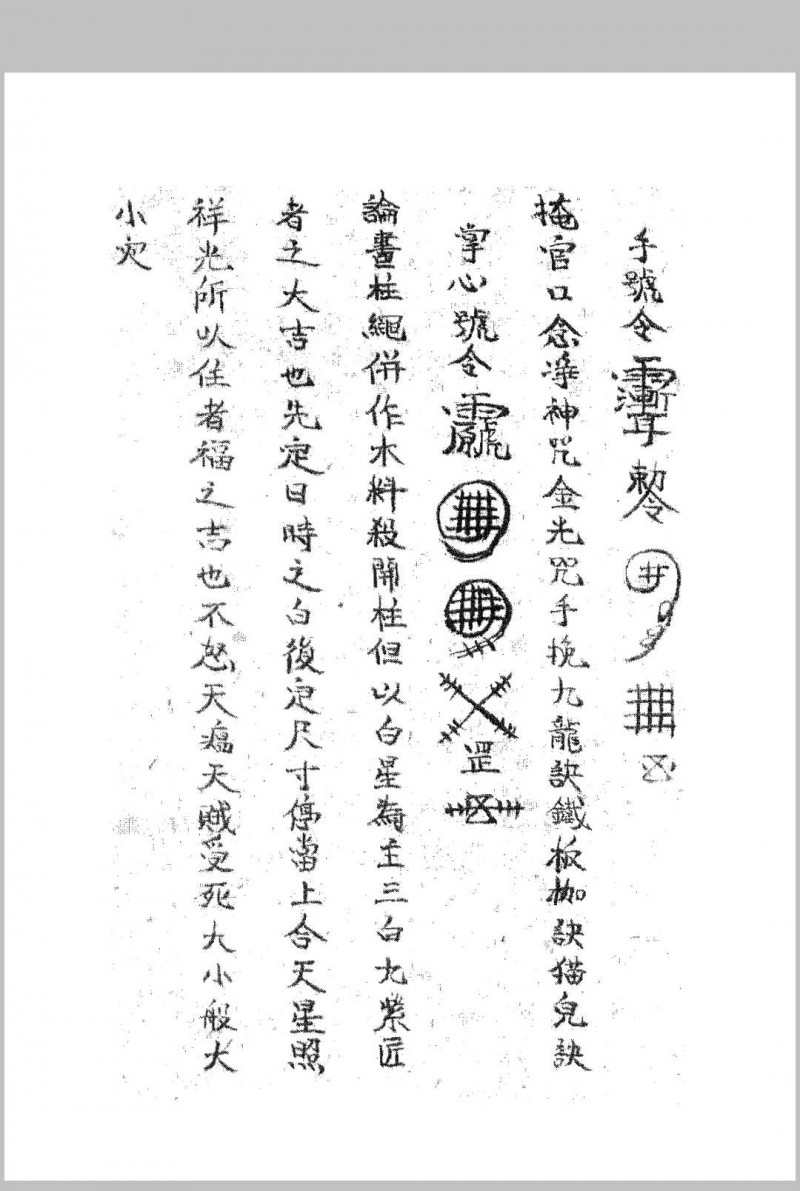 手號令 勅令
掩官口念淨神咒金光咒手挽九龍訣鐵板枷訣猫兒訣
掌心號令 罡
論畫柱繩併作木料殺開柱但以白星為主三白九紫匠
者之大吉也先定日時之白後定尺寸停當上合天星照
祥光所以住者福之吉也不怒天瘟天賊受死大小般大
小